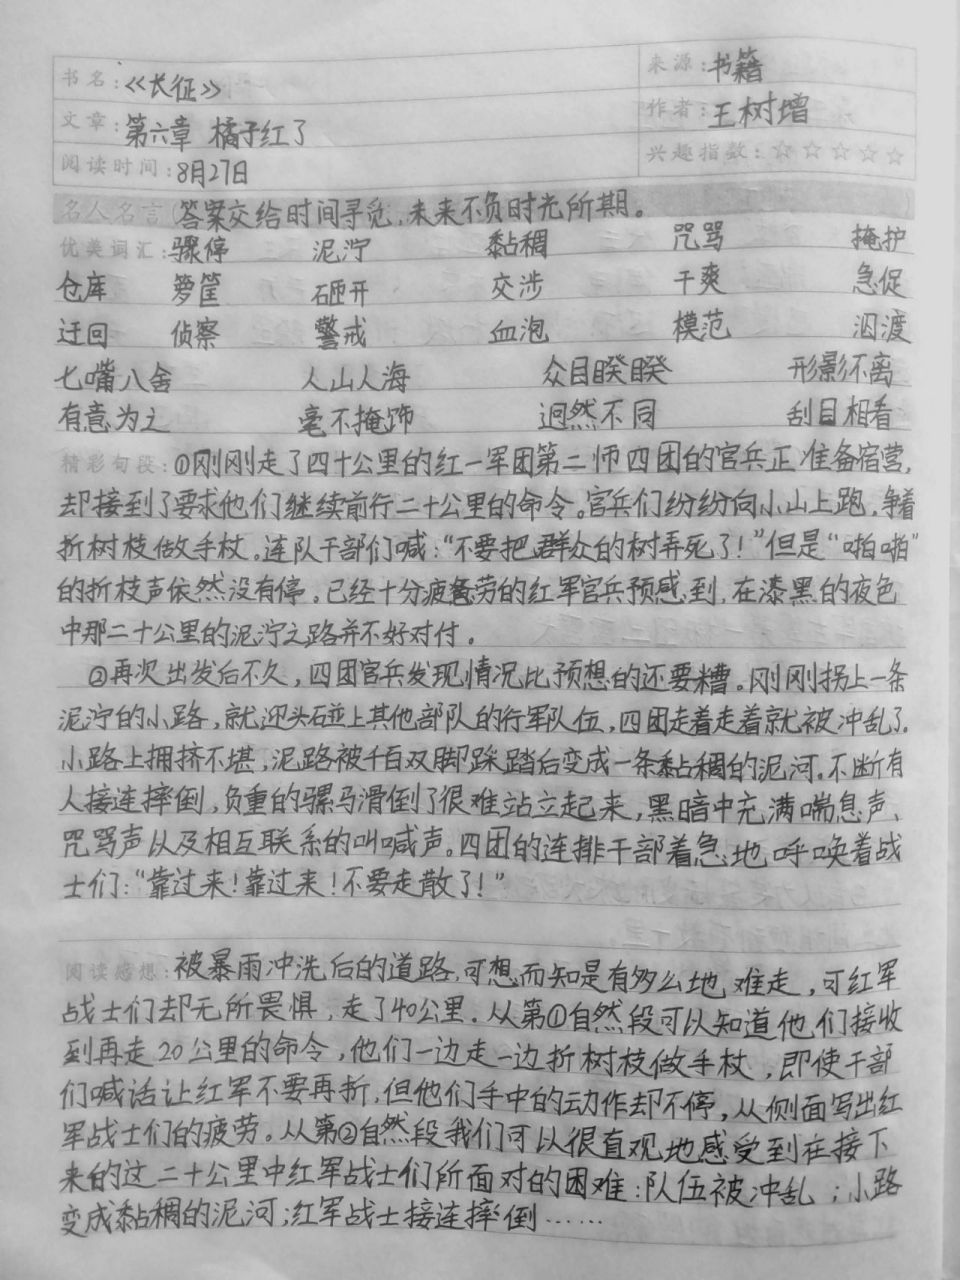 书名:《长征》
来源:书籍
文章:第六章 橘子红了
作者:王树增
阅读时间:8月27日
兴趣指数:☆☆☆☆☆
名人名言(答案交给时间寻觅,未来不负时光所期。
优美词汇:骤停 泥泞 黏稠 咒骂 掩护
仓库 箩筐 砸开 交涉 干爽 急促
迂回 侦察 警戒 血泡 模范 泅渡
七嘴八舍 人山人海 众目睽睽 形影不离
有意为之 毫不掩饰 迥然不同 刮目相看
精彩句段:①刚刚走了四十公里的红一军团第二师四团的官兵正准备宿营,
却接到了要求他们继续前行二十公里的命令。官兵们纷纷向小山上跑,争着
折树枝做手杖。连队干部们喊:“不要把群众的树弄死了!”但是“啪啪”
的折枝声依然没有停。已经十分疲惫劳的红军官兵预感到,在漆黑的夜色
中那二十公里的泥泞之路并不好对付。
②再次出发后不久,四团官兵发现情况比预想的还要糟。刚刚拐上一条
泥泞的小路,就迎头碰上其他部队的行军队伍,四团走着走着就被冲乱了.
小路上拥挤不堪,泥路被千百双脚踩踏后变成一条黏稠的泥河。不断有
人接连摔倒,负重的骡马滑倒了很难站立起来,黑暗中充满喘息声、
咒骂声以及相互联系的叫喊声。四团的连排干部着急地呼唤着战
士们:“靠过来!靠过来!不要走散了!”
阅读感想:被暴雨冲洗后的道路,可想而知是有多么地难走,可红军
战士们却无所畏惧,走了40公里.从第①自然段可以知道他们接收
到再走20公里的命令,他们一边走一边折树枝做手杖,即使干部
们喊话让红军不要再折,但他们手中的动作却不停,从侧面写出红
军战士们的疲劳。从第②自然段我们可以很直观地感受到在接下
来的这二十公里中红军战士们所面对的困难:队伍被冲乱;小路
变成黏稠的泥河;红军战士接连摔倒……